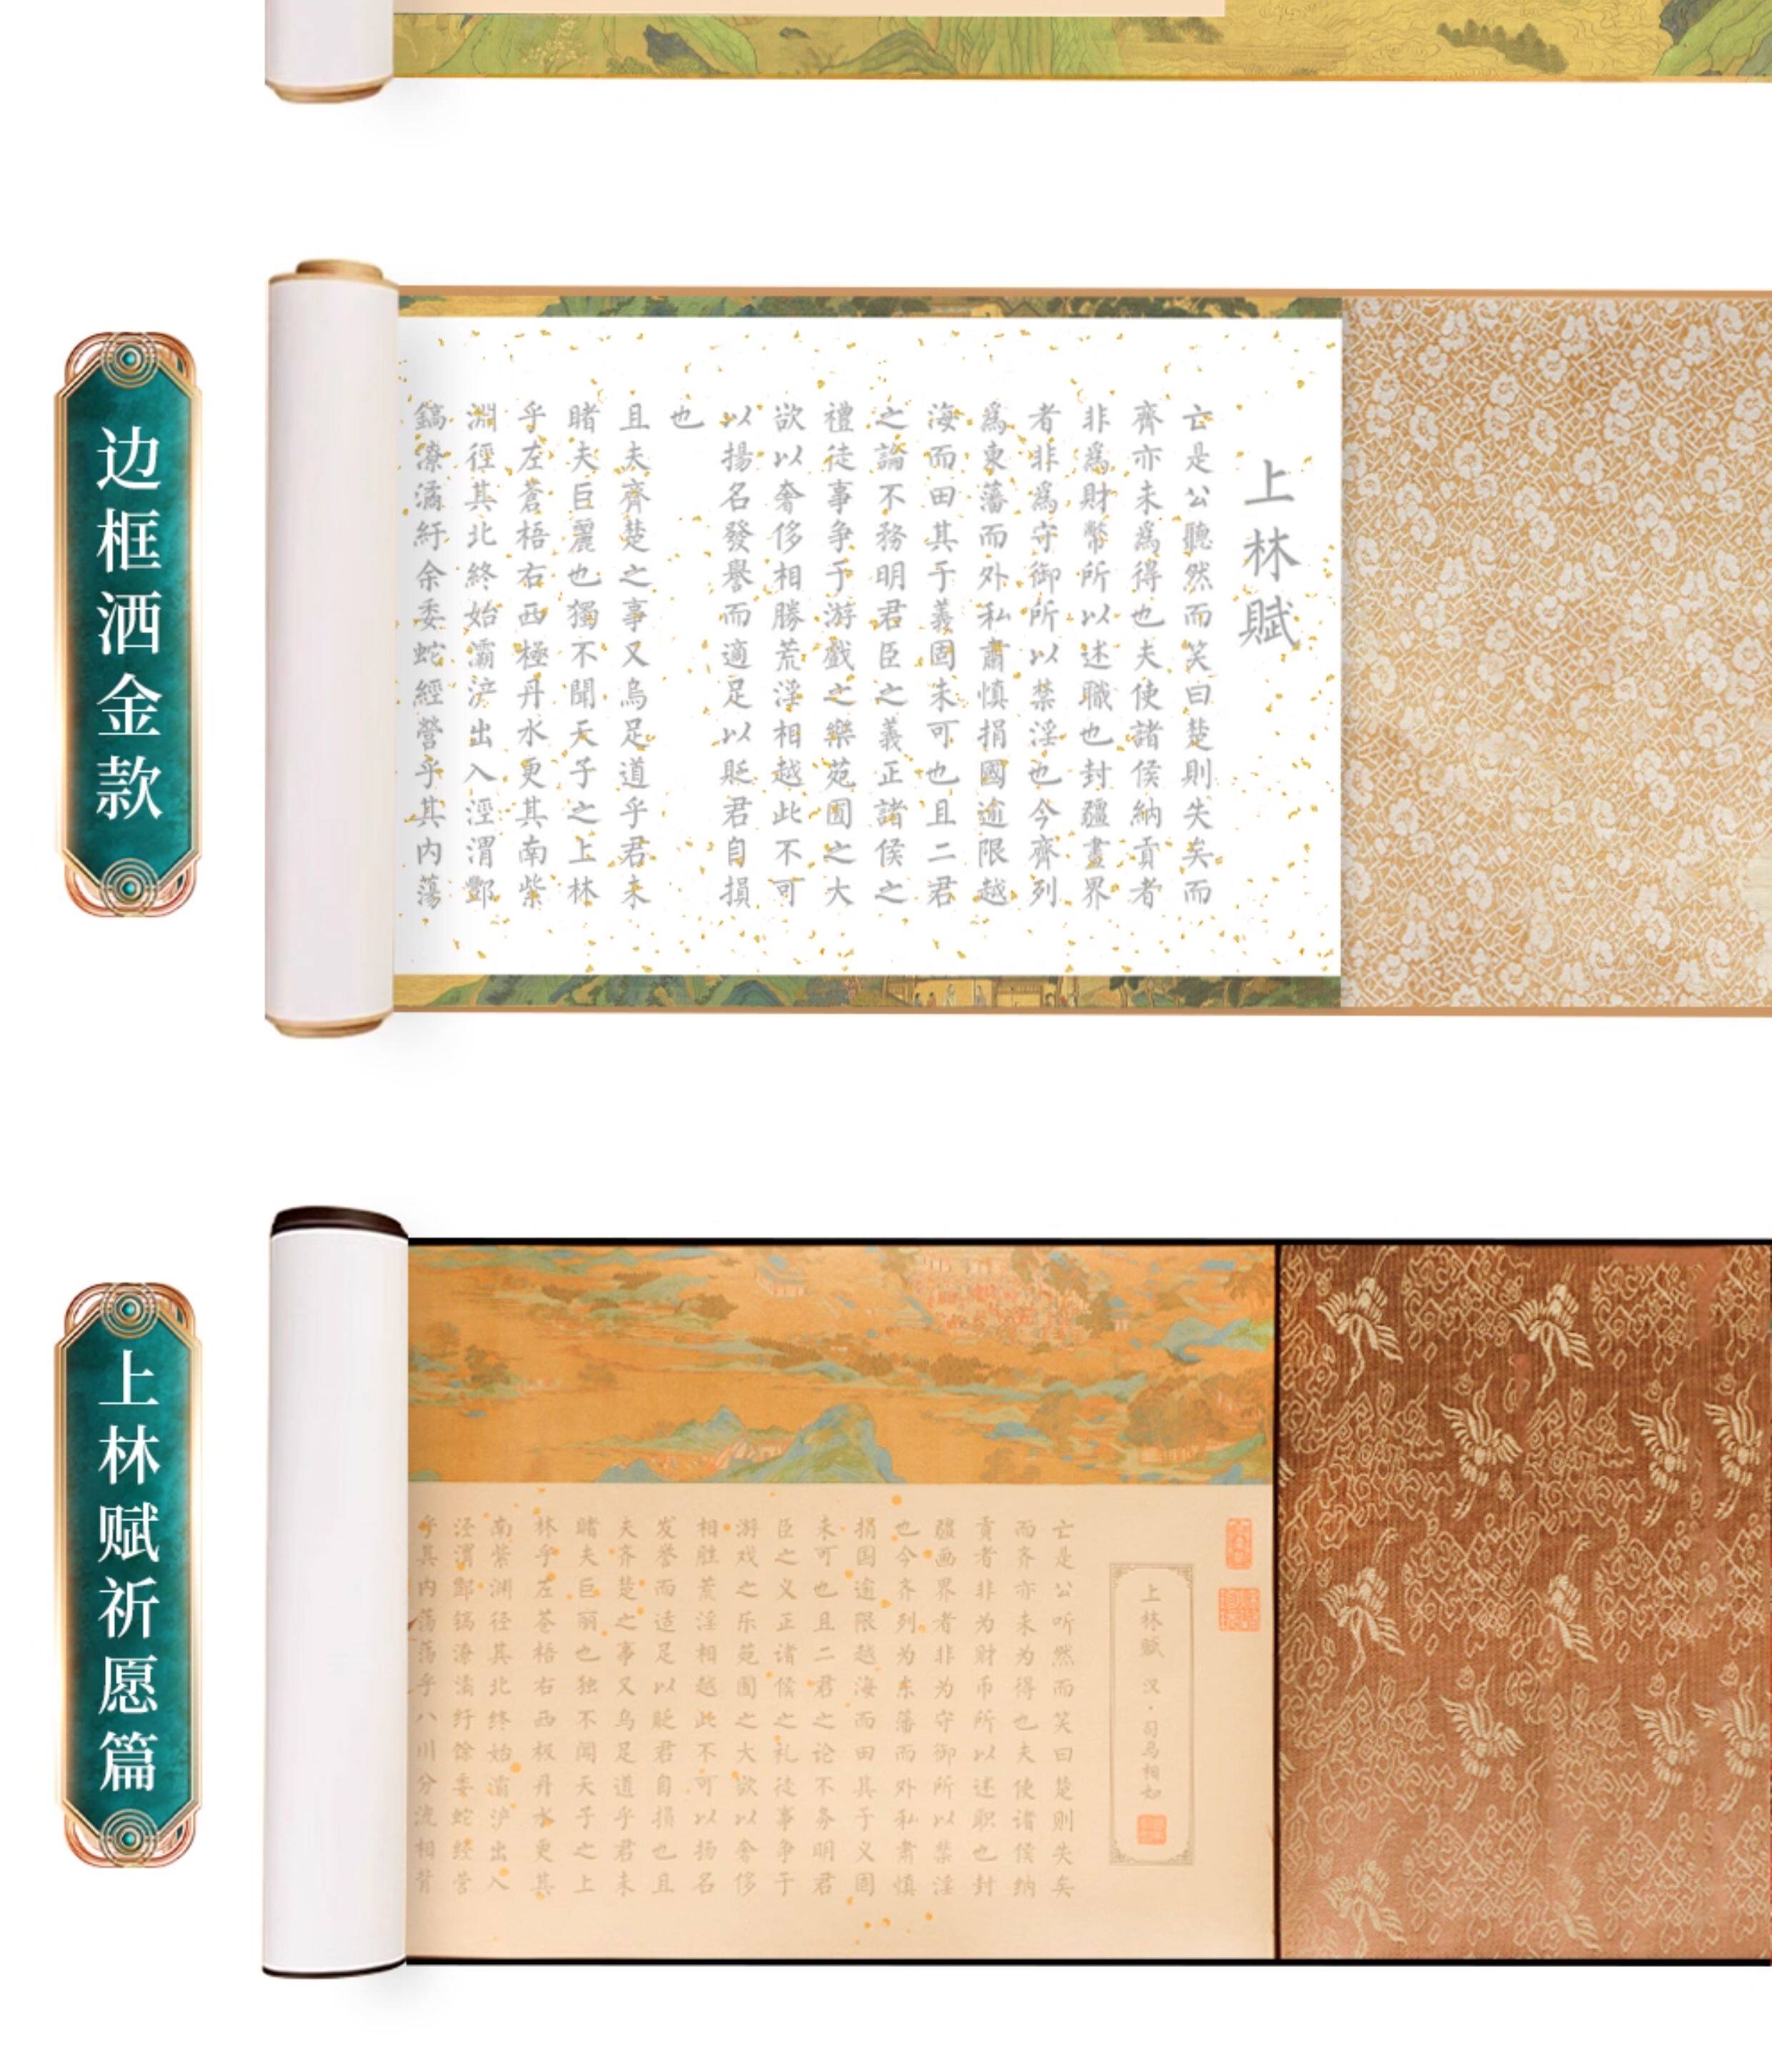 边框洒金款
上林賦
亡是公聽然而笑曰楚則失矣而
齊亦未爲得也夫使諸侯納貢者
非爲財幣所以述職也封疆畫界
者非爲守御所以禁淫也今齊列
爲東藩而外私肅慎捐國逾限越
海而田其于義固未可也且二君
之論不務明君臣之義正諸侯之
禮徒事争于游戲之樂苑囿之大
欲以奢侈相勝荒淫相越此不可
以揚名發譽而適足以貶君自損
也
且夫齊楚之事又烏足道乎君未
睹夫巨麗也獨不聞天子之上林
乎左蒼梧右西極丹水更其南紫
淵徑其北終始灞浐出入涇渭酆
鎬潦潏紆余委蛇經營乎其内蕩
上林赋祈愿篇
上林赋 汉·司马相如
亡是公听然而笑曰楚则失矣
而齐亦未为得也夫使诸侯纳
贡者非为财币所以述职也封
疆画界者非为守御所以禁淫
也今齐列为东藩而外私肃慎
捐国逾限越海而田其于义固
未可也且二君之论不务明君
臣之义正诸侯之礼徒事争于
游戏之乐苑囿之大欲以奢侈
相胜荒淫相越此不可以扬名
发誉而适足以贬君自损也且
夫齐楚之事又乌足道乎君未
睹夫巨丽也独不闻天子之上
林乎左苍梧右西极丹水更其
南紫渊径其北终始灞浐出入
泾渭酆镐潦潏纡馀委蛇经营
乎其内荡荡乎八川分流相背